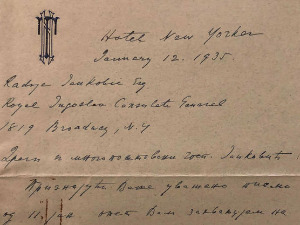 Hotel New Yorker
January 12. 1935.
Radoye Jankobić Esq
Royal Jugoslav Consulate General
1819 Broadway, N.Y.
Драги и многопоштовани госп. Јанковићу
Признајући Ваше уважено писмо
од 11. јан. опет Вам захваљујем на